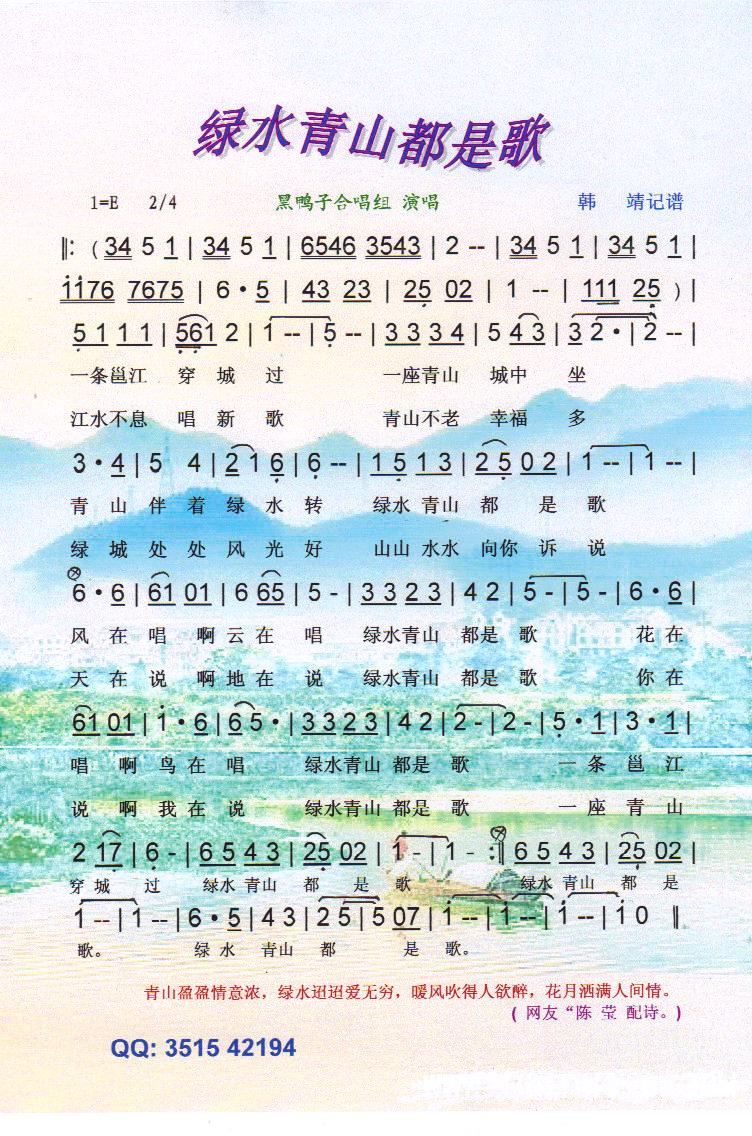 绿水青山都是歌
1=E 2/4 黑鸭子合唱组 演唱 韩 靖记谱
‖: ( 34 5 1 | 34 5 1 | 6546 3543 | 2 -- | 34 5 1 | 34 5 1 |
1176 7675 | 6 · 5 | 43 23 | 25 02 | 1 -- | 111 25 ) |
5 1 1 1 | 561 2 | 1 -- | 5 -- | 3 3 3 4 | 5 43 | 3 2 · | 2 -- |
一条邕江 穿 城 过 一座青山 城中 坐
江水不息 唱 新 歌 青山不老 幸福 多
3 · 4 | 5 4 | 2 1 6 | 6 -- | 1 5 1 3 | 2 5 0 2 | 1 -- | 1 -- |
青 山 伴 着 绿 水 转 绿水 青山 都 是 歌
绿 城 处 处 风 光 好 山山 水水 向你 诉 说
6 · 6 | 61 01 | 6 65 | 5 - | 3 3 2 3 | 4 2 | 5 - | 5 - | 6 · 6 |
风 在 唱 啊 云 在 唱 绿水青山 都是 歌 花 在
天 在 说 啊 地 在 说 绿水青山 都是 歌 你 在
61 01 | 1 · 6 | 65 · | 3 3 2 3 | 4 2 | 2 - | 2 - | 5 · 1 | 3 · 1 |
唱 啊 鸟 在 唱 绿水青山 都是 歌 一 条 邕 江
说 啊 我 在 说 绿水青山 都是 歌 一 座 青 山
2 17 | 6 - | 6 5 4 3 | 25 02 | 1 - | 1 - :‖ 6 5 4 3 | 25 02 |
穿 城 过 绿水 青山 都 是 歌 绿水 青山 都 是
1 -- | 1 -- | 6 · 5 | 4 3 | 2 5 | 5 07 | 1 -- | 1 -- | 1 -- | 1 0 ‖
歌。 绿 水 青山 都 是 歌。
青山盈盈情意浓，绿水迢迢爱无穷，暖风吹得人欲醉，花月洒满人间情。
( 网友“陈 莹 配诗。)
QQ: 3515 42194